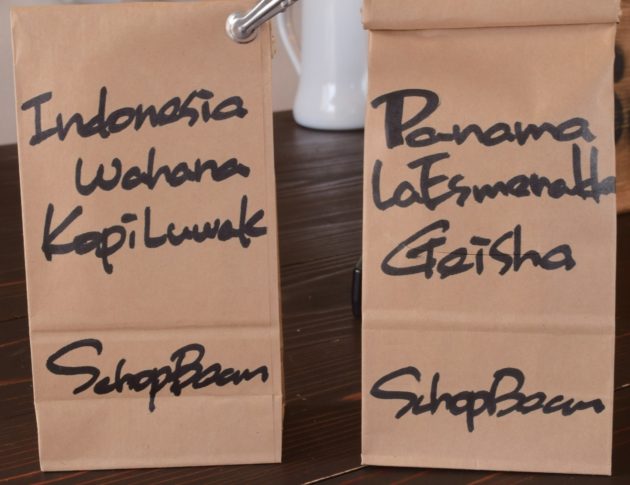 Indonesia
Wahana
Kopi Luwak
SchopBaan
Panama
La Esmeralda
Geisha
SchopBaan